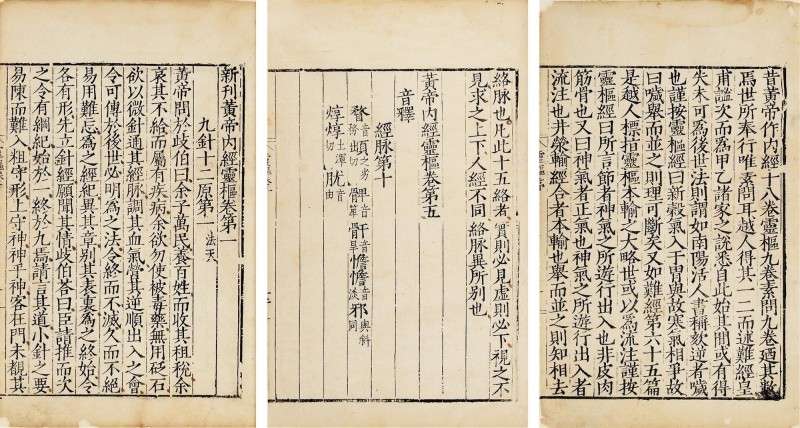 昔黃帝作內經十八卷靈樞九卷素問九卷廼其數
焉世所奉行唯素問耳越人得其一二而述難經皇
甫謐次而為甲乙諸家之說悉自此始其間或有得
失未可為後世法則謂如南陽活人書稱欬逆者噦
也謹按靈樞經曰新穀氣入于胃與故寒氣相爭故
曰噦舉而並之則理可斷矣又如難經第六十五篇
是越人標指靈樞本輸之大略世或以為流注謹按
靈樞經曰所言節者神氣之所遊行出入也非皮肉
筋骨也又曰神氣者正氣也神氣之所遊行出入者
流注也井滎輸經合者本輸也舉而並之則知相去
絡脉也凡此十五絡者實則必見虛則必下視之不
見求之上下人經不同絡脉異所別也
黃帝內經靈樞卷第五
音釋
經脉第十
骭 憺憺音淡邪音與斜同
焞焞土渾切肬音由
新刊黃帝內經靈樞卷第一
九針十二原第一 法天
黃帝問於歧伯曰余子萬民養百姓而收其租稅余
哀其不給而屬有疾病余欲勿使被毒藥無用砭石
欲以微針通其經脉調其血氣營其逆順出入之會
令可傳於後世必明為之法令終而不滅久而不絕
易用難忘為之經紀異其章別其表裏為之終始令
各有形先立針經願聞其情歧伯荅曰臣請推而次
之令有綱紀始於一終於九焉請言其道小針之要
易陳而難入粗守形上守神神乎神客在門未覩其